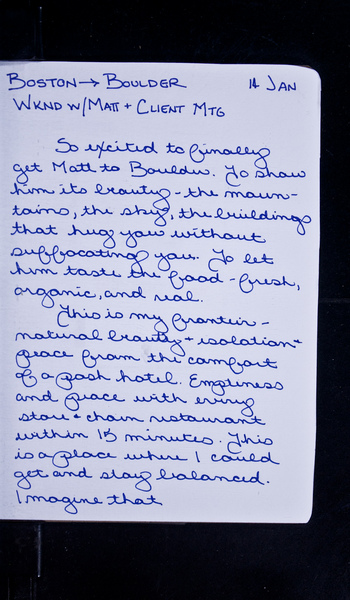 BOSTON → BOULDER 14 JAN
WKND W/MATT + CLIENT MTG
So excited to finally
get Matt to Boulder. To show
him its beauty - the moun-
tains, the sky, the buildings
that hug you without
suffocating you. To let
him taste the food - fresh,
organic, and real.
This is my frontier -
natural beauty + isolation +
peace from the comfort
of a posh hotel. Emptiness
and peace with every
store + chain restaurant
within 15 minutes. This
is a place where I could
get and stay balanced.
I imagine that